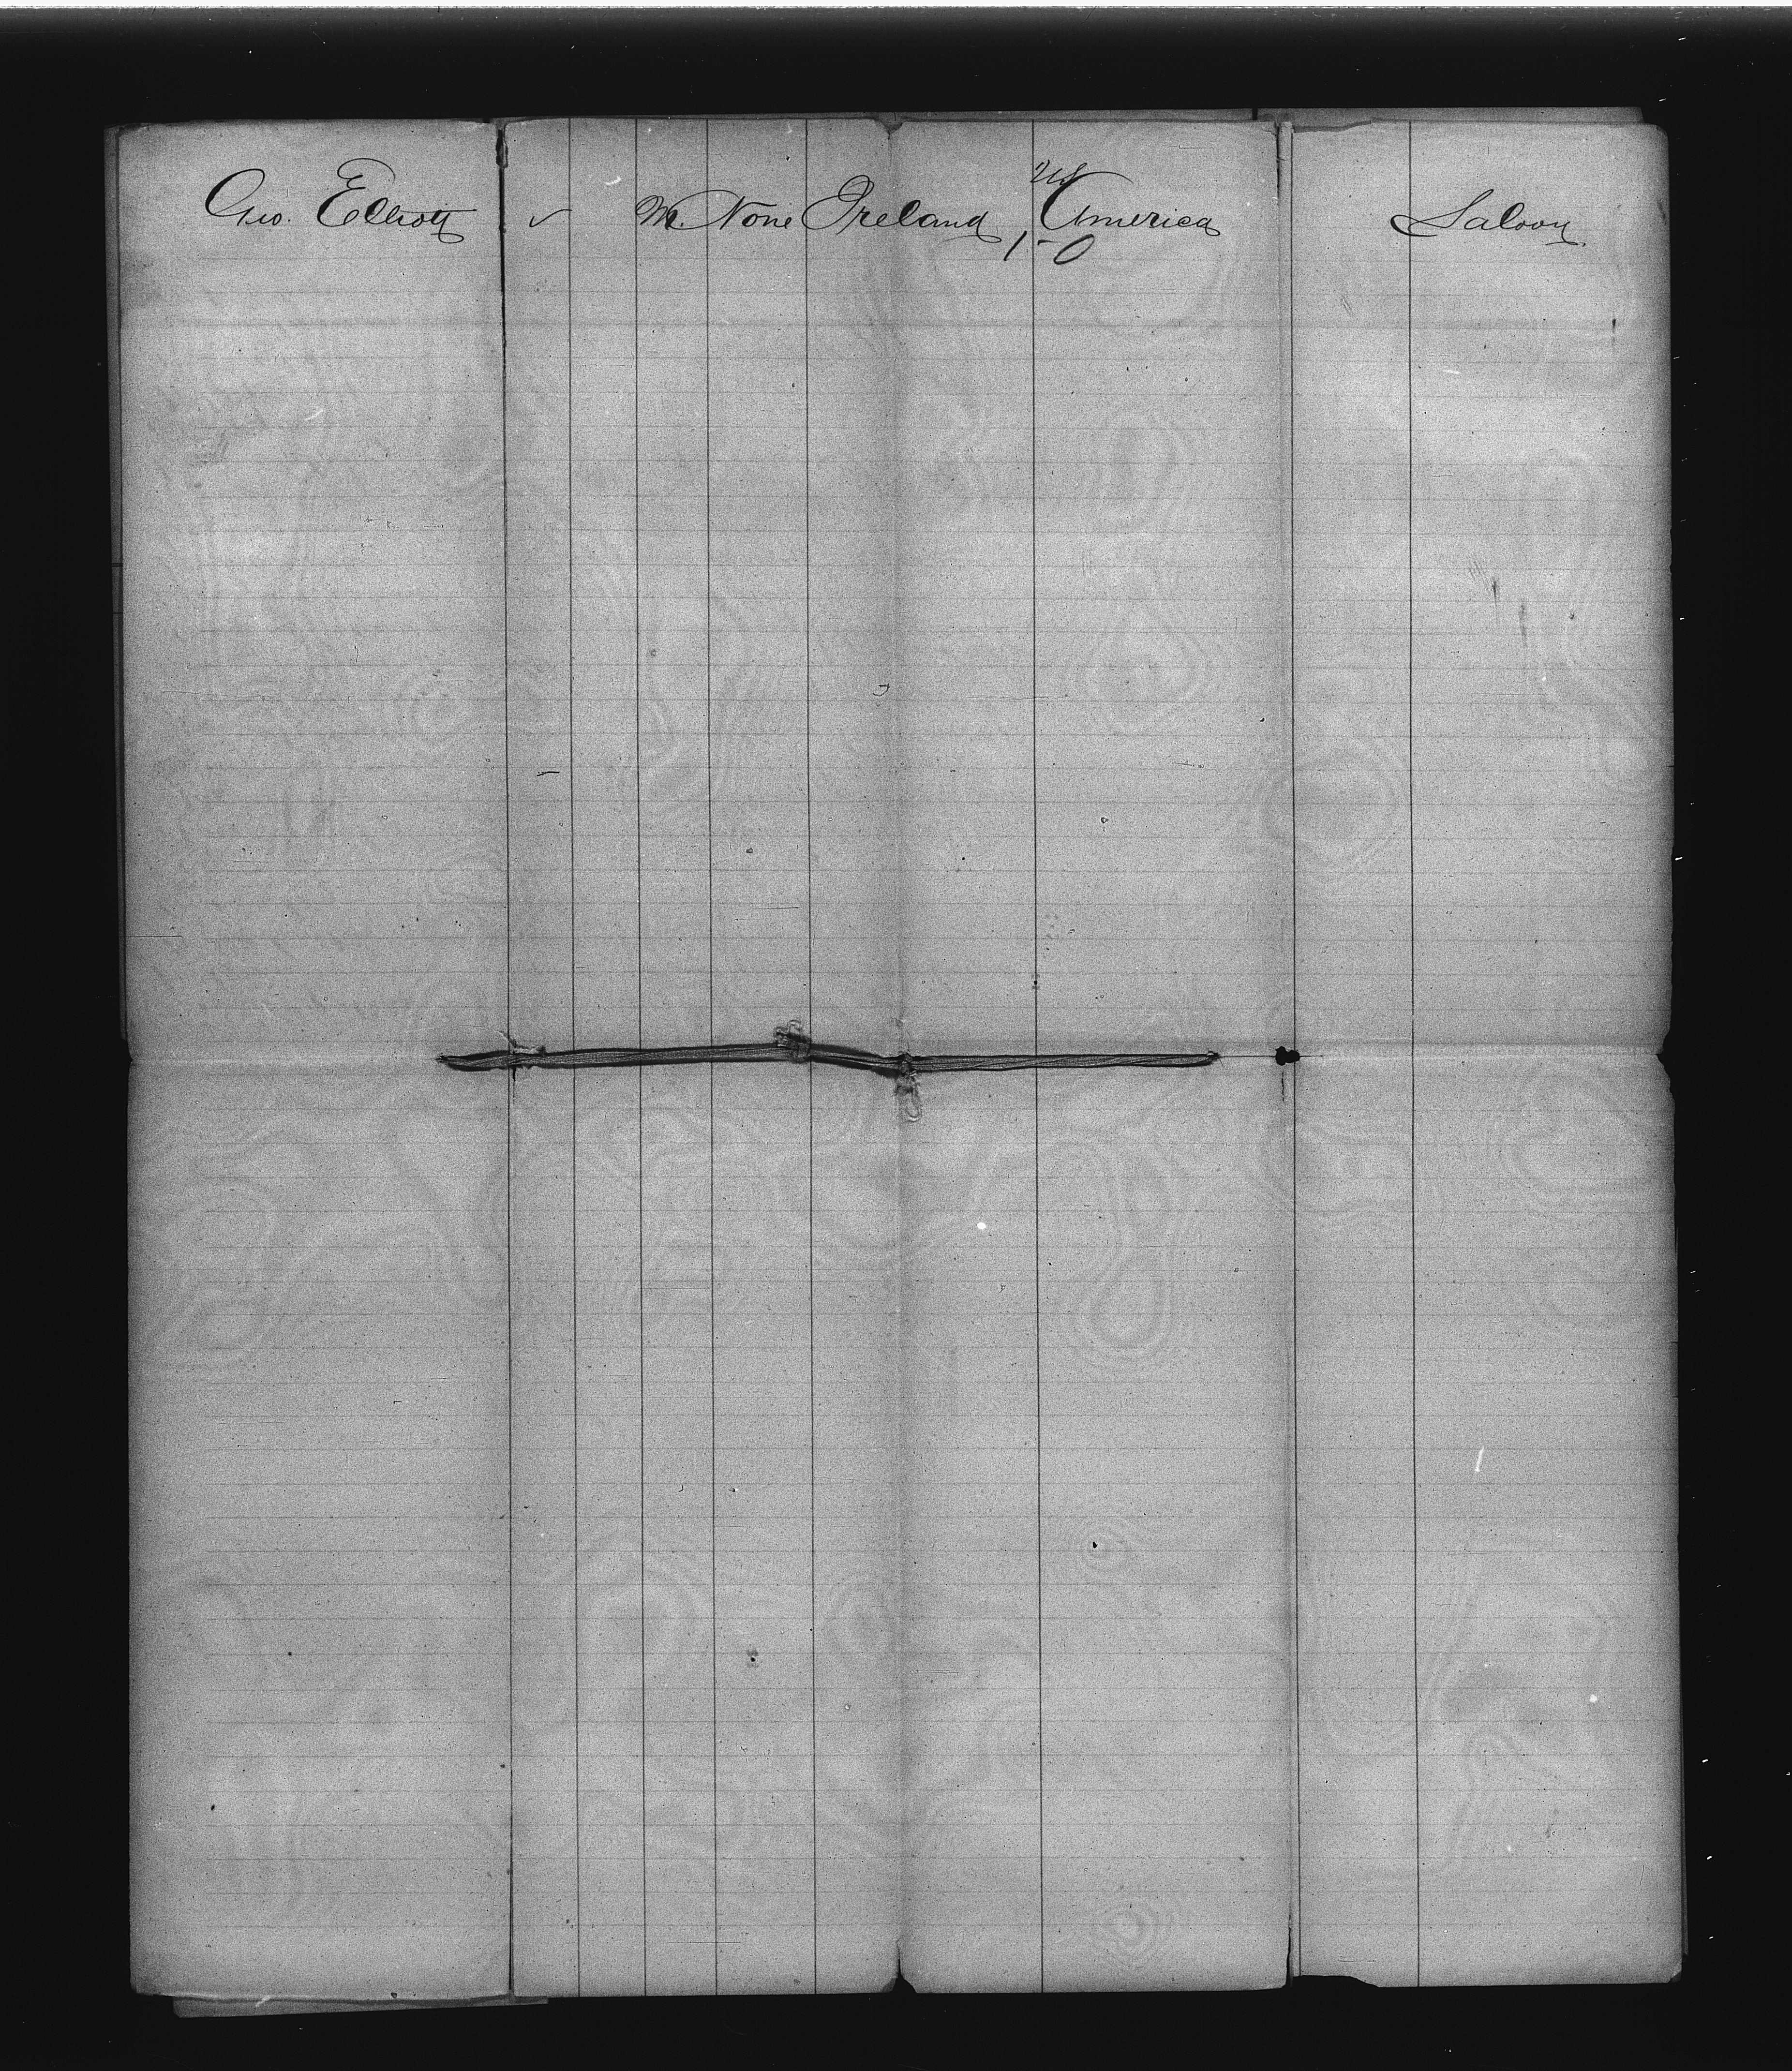 US
Geo. Elliott ✓ M. None Ireland America Saloon
1-0